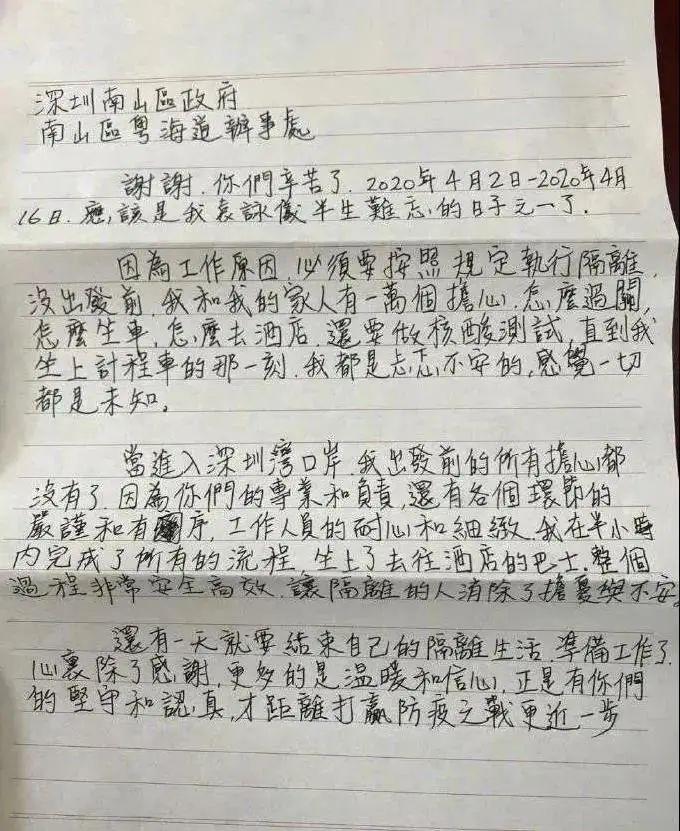 深圳南山區政府
南山區粵海道辦事處
謝謝.你們辛苦了.2020年4月2日-2020年4月
16日.應該是我袁詠儀半生難忘的日子之一了.
因為工作原因,必須要按照規定執行隔離,
沒出發前,我和我的家人有一萬個擔心.怎麼過關,
怎麼坐車,怎麼去酒店,還要做核酸測試,直到我
坐上計程車的那一刻.我都是忐忑不安的,感覺一切
都是未知。
當進入深圳灣口岸.我出發前的所有擔心都
沒有了.因為你們的專業和負責,還有各個環節的
嚴謹和有序,工作人員的耐心和細緻.我在半小時
內完成了所有的流程,坐上了去往酒店的巴士.整個
過程非常安全高效.讓隔離的人消除了擔憂與不安。
還有一天就要結束自己的隔離生活,準備工作了.
心裏除了感謝,更多的是溫暖和信心,正是有你們
的堅守和認真,才距離打贏防疫之戰更近一步